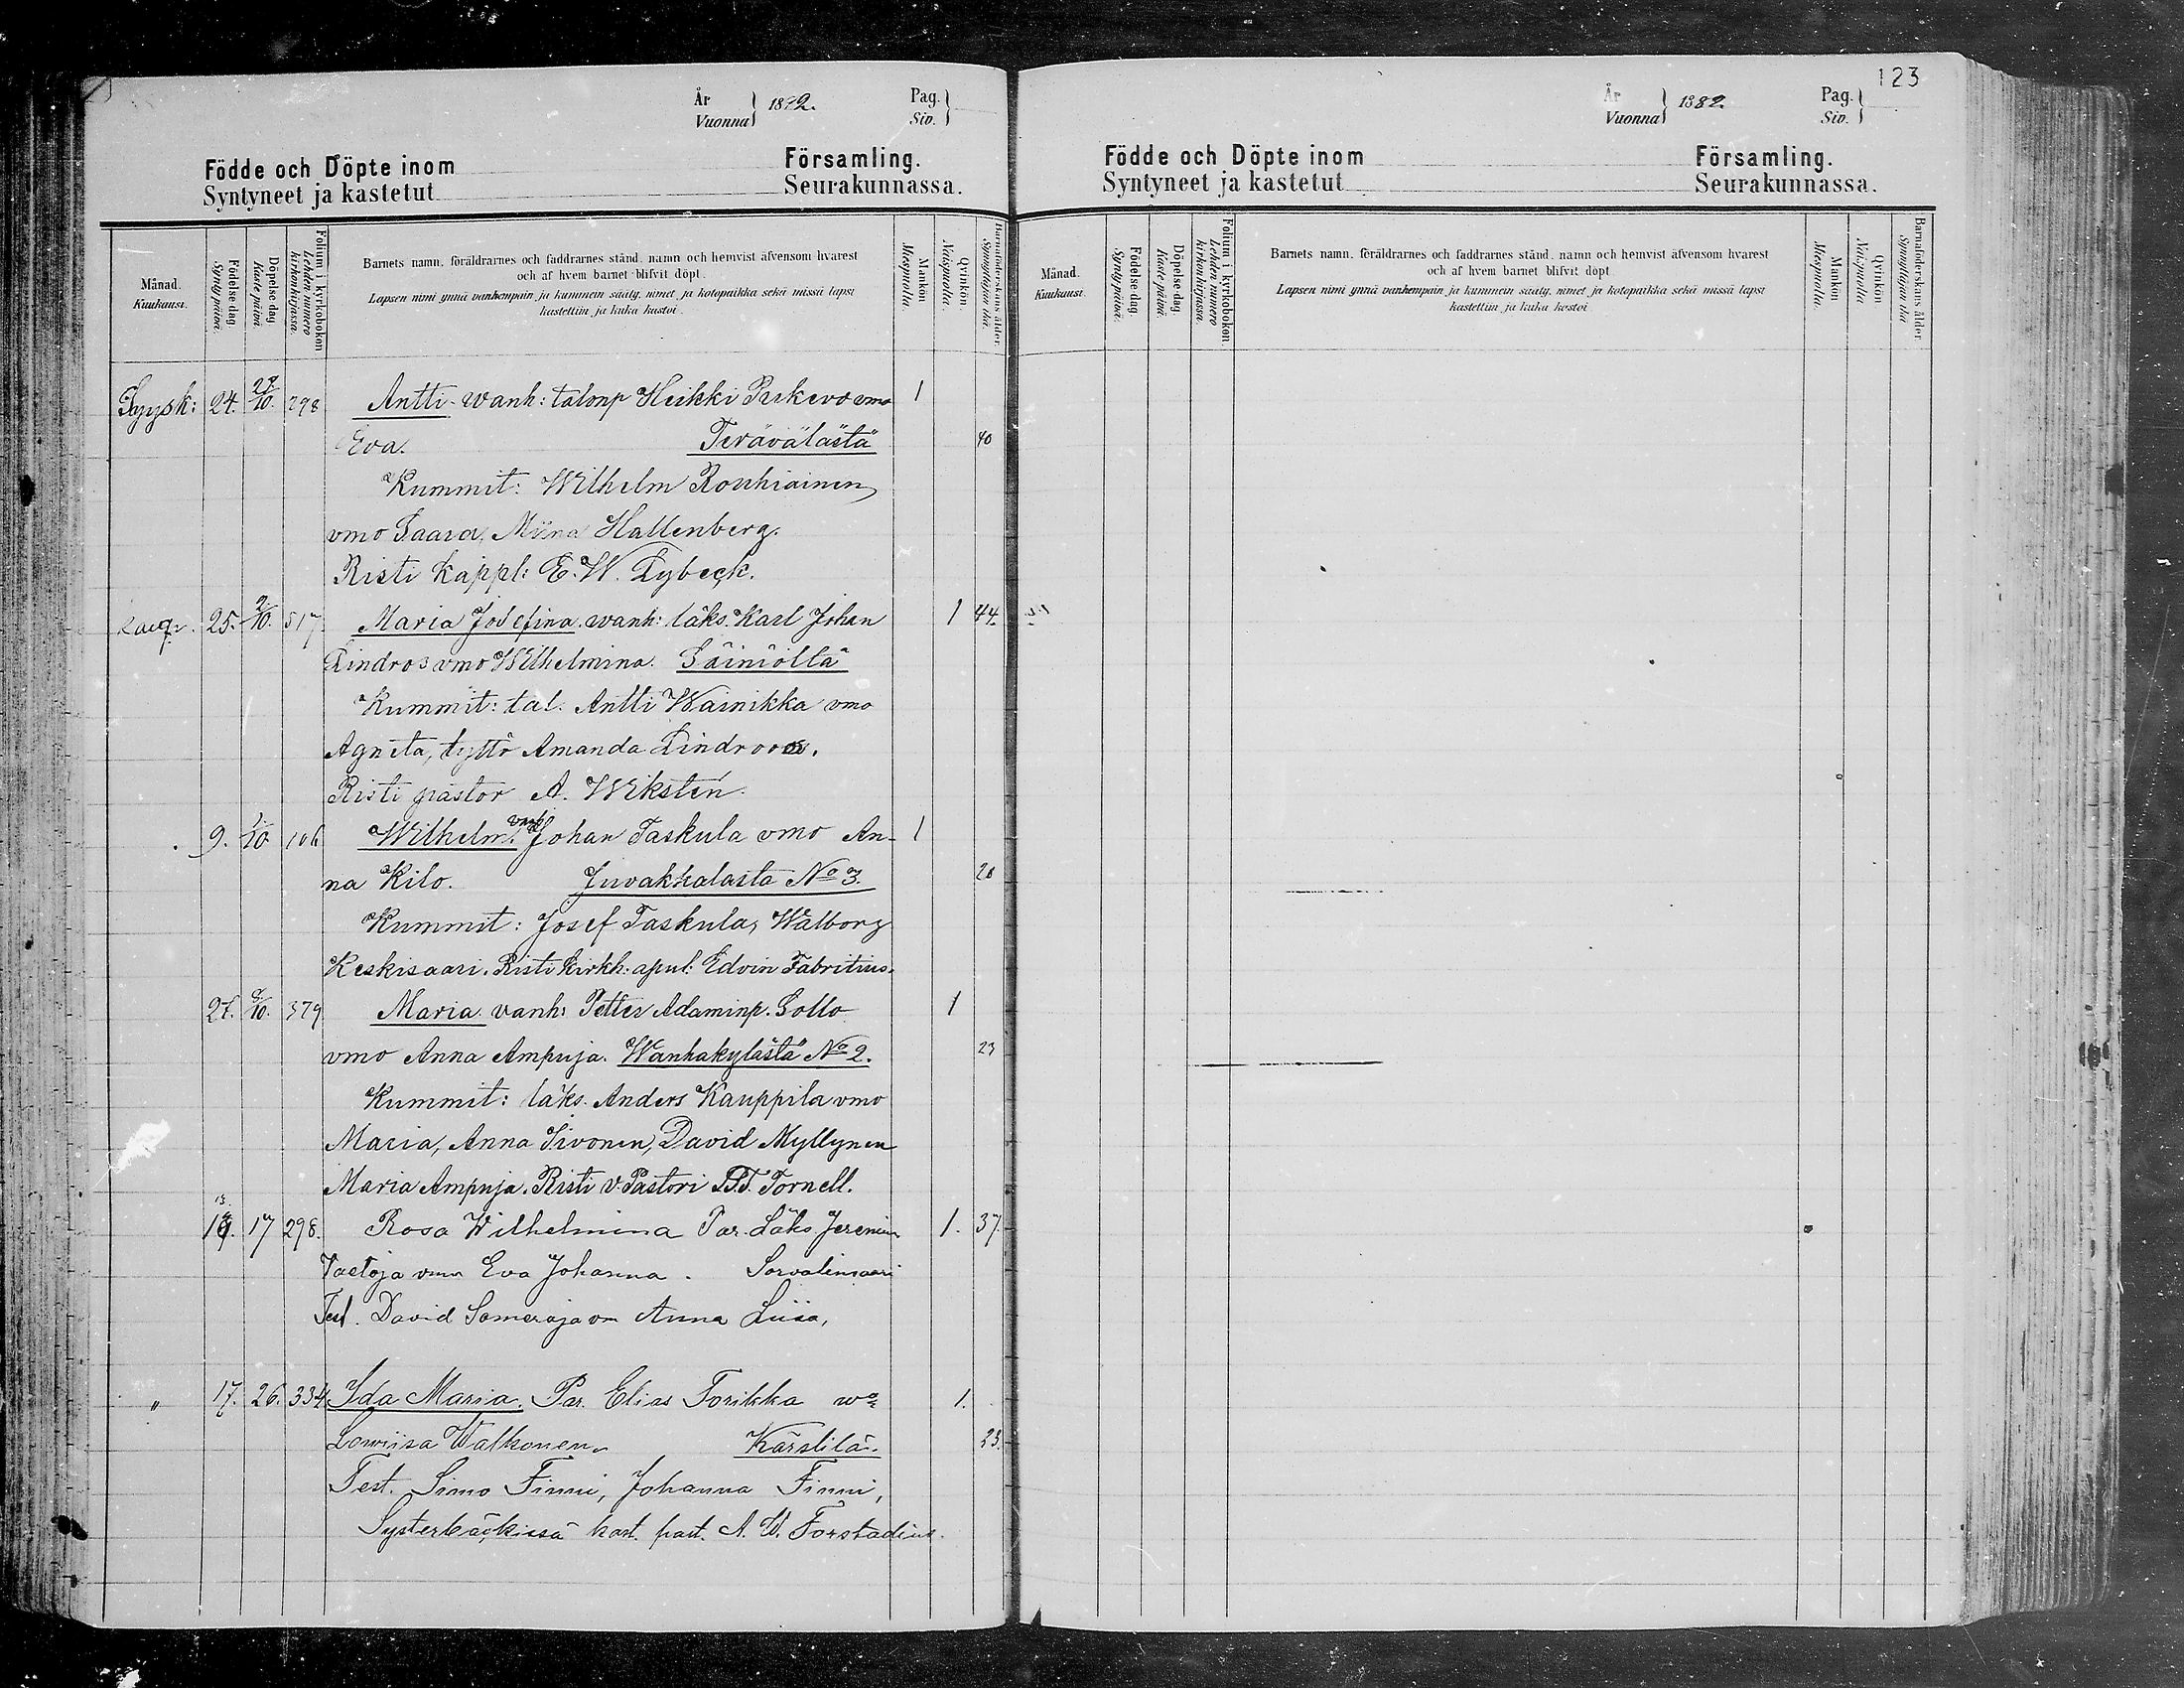 År
Vuonna } 1882.
Pag.
Siv. }
Födde och Döpte inom Församling.
Syntyneet ja kastetut Seurakunnassa.
Månad.
Kuukausi.
Födelse dag.
Synty päivä.
Döpelse dag
Kaste päivä.
Folium i kyrkoboken
Lehden numero
kirkonkirjassa.
Barnets namn, föräldrarnes och faddrarnes stånd, namn och hemvist äfvensom hvarest
och af hvem barnet blifvit döpt.
Lapsen nimi ynnä vanhempain ja kummein sääty, nimet ja kotopaikka sekä missä lapsi
kastettiin ja kuka kastoi.
Mankön
Miespuolta.
Qvinkön.
Naispuolta.
Barnaföderskans ålder.
Synnyttäjän ikä.
Syysk: 24. 298 Antti. wanh: talonp Heikki Parkevo vmo 1
Eva. Terävälästä 40
Kummit: Wilhelm Rouhiainen
vmo Saara, Miina Hallenberg.
Risti Kappl: E. W. Lybeck.
25. 2/10. 517. Maria Josefina. wanh: läks. Karl Johan 1 44.
Lindros vmo Wilhelmina. Säiniöltä
Kummit: tal. Antti Wainikka vmo
Agneta, tyttö Amanda Lindroos.
Risti pastor A. Wikstén.
9. 106 Wilhelm. vanh: Johan Taskula vmo An- 1
na Kilo. Juvakkalasta No 3. 28
Kummit: Josef Taskula, Walborg
Keskisaari. Risti Kirkh: apul: Edvin Fabritius.
379 Maria vanh: Petter Adaminp. Sollo 1
vmo Anna Ampuja. Wanhakylästä No 2. 23
Kummit: läks. Anders Kauppila vmo
Maria, Anna Sivonen, David Myllynen
Maria Ampuja. Risti v. Pastori Tornell.
17 298. Rosa Wilhelmina Par. Läks Jeremias 1. 37.
Vaetoja vmo Eva Johanna. Sorvalinsaari
Test. David Someroja vm Anna Liisa,
" 17. 26. 334 Ida Maria. Par. Elias Torikka wo 1.
Lowiisa Walkonen. Kärstilä. 23.
Test. Simo Finni, Johanna Finni,
Systerbäckissä kast. past. A. W. Forstadius.
123
År
Vuonna } 1882.
Pag.
Siv. }
Födde och Döpte inom Församling.
Syntyneet ja kastetut Seurakunnassa.
Månad.
Kuukausi.
Födelse dag.
Synty päivä.
Döpelse dag.
Kaste päivä.
Folium i kyrkoboken.
Lehden numero
kirkonkirjassa.
Barnets namn, föräldrarnes och faddrarnes stånd, namn och hemvist äfvensom hvarest
och af hvem barnet blifvit döpt.
Lapsen nimi ynnä vanhempain ja kummein sääty, nimet ja kotopaikka sekä missä lapsi
kastettiin ja kuka kastoi
Mankön
Miespuolta.
Qvinkön
Naispuolta
Barnaföderskans ålder
Synnyttäjän ikä